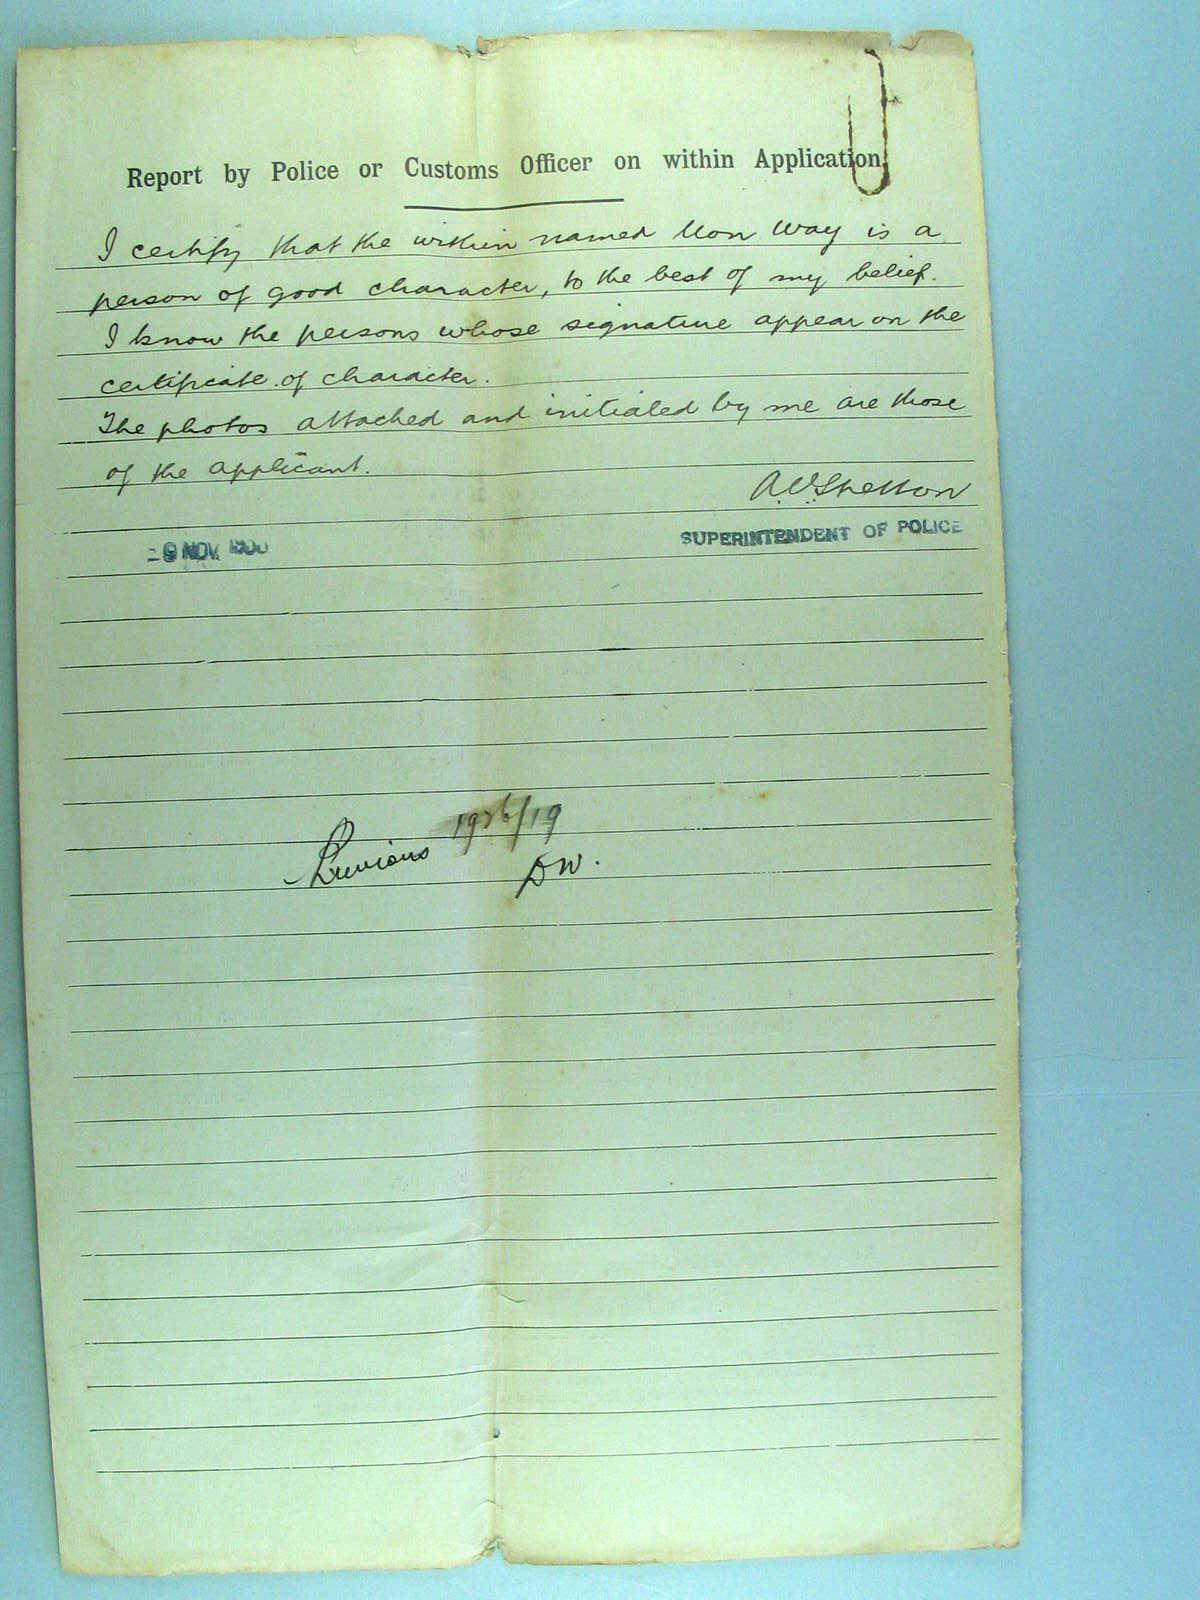 Report by Police or Customs Officer on within Application.
I certify that the within named Mon Way is a
person of good character, to the best of my belief.
I know the persons whose signature appear on the
certificate of character.
The photos attached and initialed by me are those
of the applicant.
A.V. Shelton
SUPERINTENDENT OF POLICE
9 NOV.
Previous 1926/19
DW.